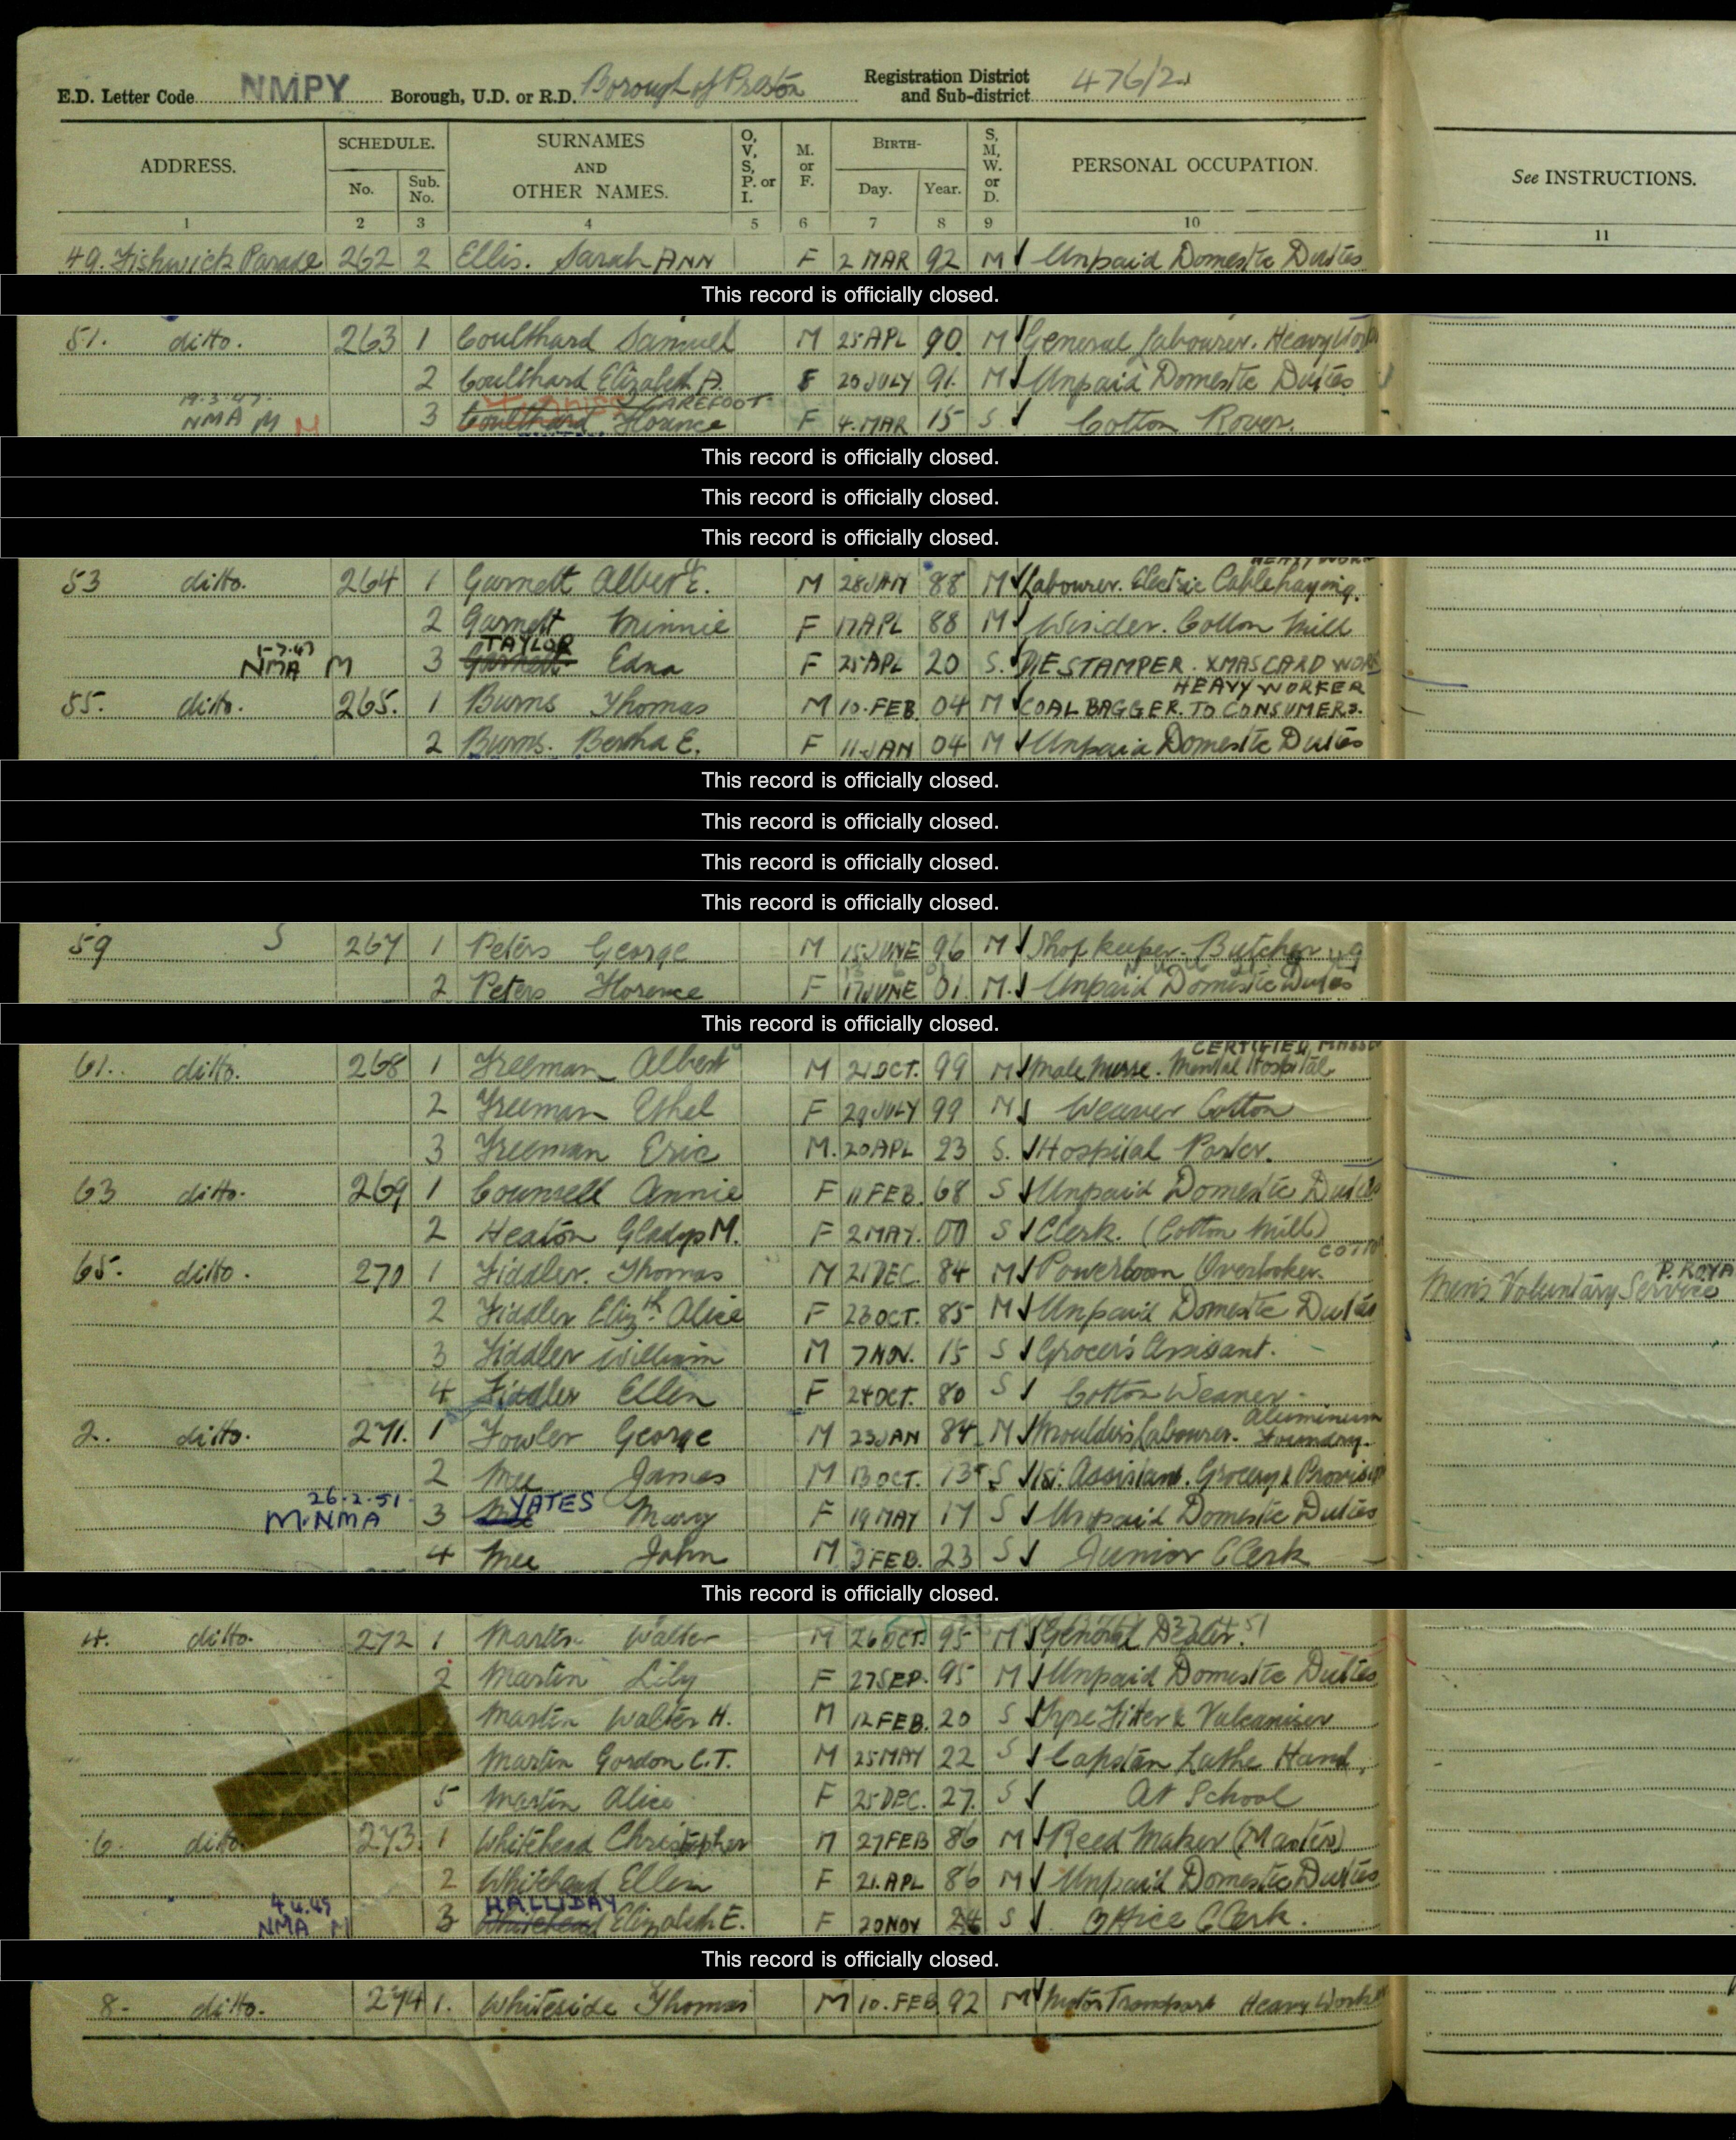 E.D. Letter Code NMPY Borough, U.D. or R.D. Borough of Preston Registration District and Sub-district 476/2
ADDRESS. SCHEDULE. No. Sub. No. SURNAMES AND OTHER NAMES. O, V, S, P. or I. M. or F. BIRTH- Day. Year. S, M, W. or D. PERSONAL OCCUPATION. See INSTRUCTIONS.
1 2 3 4 5 6 7 8 9 10 11
49. Fishwick Parade 262 2 Ellis. Sarah ANN F 2 MAR 92 M Unpaid Domestic Duties
This record is officially closed.
51. ditto. 263 1 Coulthard Samuel M 25 APL 90 M General Labourer. Heavy Work
2 Coulthard Elizabeth A. F 20 JULY 91 M Unpaid Domestic Duties
19.3.47.
BAREFOOT
NMA M M 3 Coulthard Florence F 4 MAR 15 S Cotton Rover.
This record is officially closed.
This record is officially closed.
This record is officially closed.
HEAVY WORK
53 ditto. 264 1 Garnett Albert E. M 28 JAN 88 M Labourer. Electric Cable haying.
2 Garnett Minnie F 17 APL 88 M Winder. Cotton Mill
1-7.47 TAYLOR
NMA M 3 Garnett. Edna F 25 APL 20 S. DIE STAMPER. XMAS CARD WORK
HEAVY WORKER
55. ditto. 265. 1 Burns Thomas M 10. FEB 04 M COAL BAGGER. TO CONSUMERS.
2 Burns. Bertha E. F 11 JAN 04 M Unpaid Domestic Duties
This record is officially closed.
This record is officially closed.
This record is officially closed.
This record is officially closed.
59 S 267 1 Peters George M 15 JUNE 96 M Shopkeeper. Butcher
2 Peters Florence F 17 JUNE 01. M. Unpaid Domestic Duties
This record is officially closed.
CERTIFIED
61. ditto. 268 1 Freeman Albert M 21 OCT. 99 M Male Nurse. Mental Hospital
2 Freeman Ethel F 29 JULY 99 M Weaver Cotton
3 Freeman Eric M. 20 APL 23 S. Hospital Porter.
63 ditto. 269 1 Counsell Annie F 11 FEB. 68 S Unpaid Domestic Duties
2 Heaton Gladys M. F 2 MAY. 00 S Clerk. (Cotton Mill)
COTTON
65. ditto. 270 1 Fiddler. Thomas M 21 DEC. 84 M Powerloom Overlooker. Mens Voluntary Service
2 Fiddler Elizth. Alice F 23 OCT. 85 M Unpaid Domestic Duties
3 Fiddler William M 7 NOV. 15 S Grocer's Assisant.
4 Fiddler Ellen F 24 OCT. 80 S Cotton Weaver.
Aluminum
2. ditto. 271. 1 Fowler George M 23 JAN 84 M Moulders Labourer. Foundry.
2 Mee James M 13 OCT. 13 S 1st. Assistant. Grocery & Provision
26.2.51. YATES
M. NMA 3 Mee Mary F 19 MAY 17 S Unpaid Domestic Duties
4 Mee John M 3 FEB. 23 S Junior Clerk
This record is officially closed.
4. ditto. 272 1 Martin Walter M 26 OCT. 95 M General Dealer.
2 Martin Lily F 27 SEP. 95 M Unpaid Domestic Duties
Martin Walter H. M 12 FEB. 20 S Tyre Fitter & Vulcaniser
Martin Gordon C.T. M 25 MAY 22 S Capstan Lathe Hand.
5 Martin Alice F 25 DEC. 27. S At School
6. ditto 273. 1 Whitehead Christopher M 27 FEB 86 M Reed Maker (Master)
2 Whitehead Ellen F 21. APL 86 M Unpaid Domestic Duties
HALLIDAY
NMA M 3 Whitehead Elizabeth E. F 20 NOV 24 S Office Clerk.
This record is officially closed.
8. ditto. 274 1. Whiteside Thomas M 10. FEB 92 M Motor Transport Heavy Worker